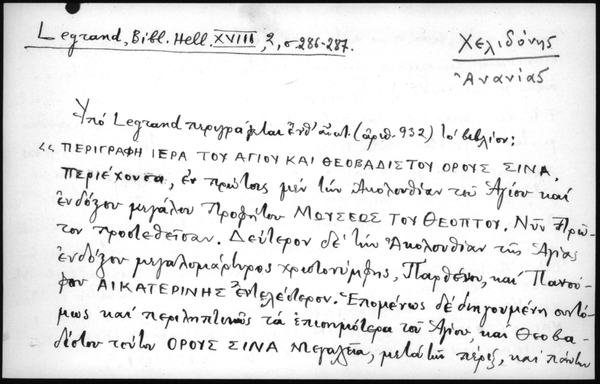 Legrand, Bibl. Hell. XVIII, 2, σ. 286-287.
Χελιδόνης
Ἀνανίας
Ὑπό Legrand περιγράφεται ἐνθ' ἀν. (ἀριθ. 932) το βιβλίον:
« ΠΕΡΙΓΡΑΦΗ ΙΕΡΑ ΤΟΥ ΑΓΙΟΥ ΚΑΙ ΘΕΟΒΑΔΙΣΤΟΥ ΟΡΟΥΣ ΣΙΝΑ,
Περιέχουσα, ἐν πρώτοις μὲν τὴν Ἀκολουθίαν τοῦ Ἁγίου καί
ἐνδόξου μεγάλου Προφήτου ΜΩΥΣΕΩΣ ΤΟΥ ΘΕΟΠΤΟΥ, Νῦν Πρῶ-
τον προστεθεῖσαν. Δεύτερον δέ τήν Ἀκολουθίαν τῆς Ἁγίας
ἐνδόξου μεγαλομάρτυρος χριστονύμφης, Παρθένου, καί Πανσό-
φου ΑΙΚΑΤΕΡΙΝΗΣ ἐντελέστερον. Ἑπομένως δέ διηγουμένη συντό-
μως καί περιληπτικῶς τά ἐπισημότερα τοῦ Ἁγίου, καί Θεοβα-
δίστου τούτου ΟΡΟΥΣ ΣΙΝΑ Μεγαλεῖα, μετά τῶν πέριξ, καί πάντων